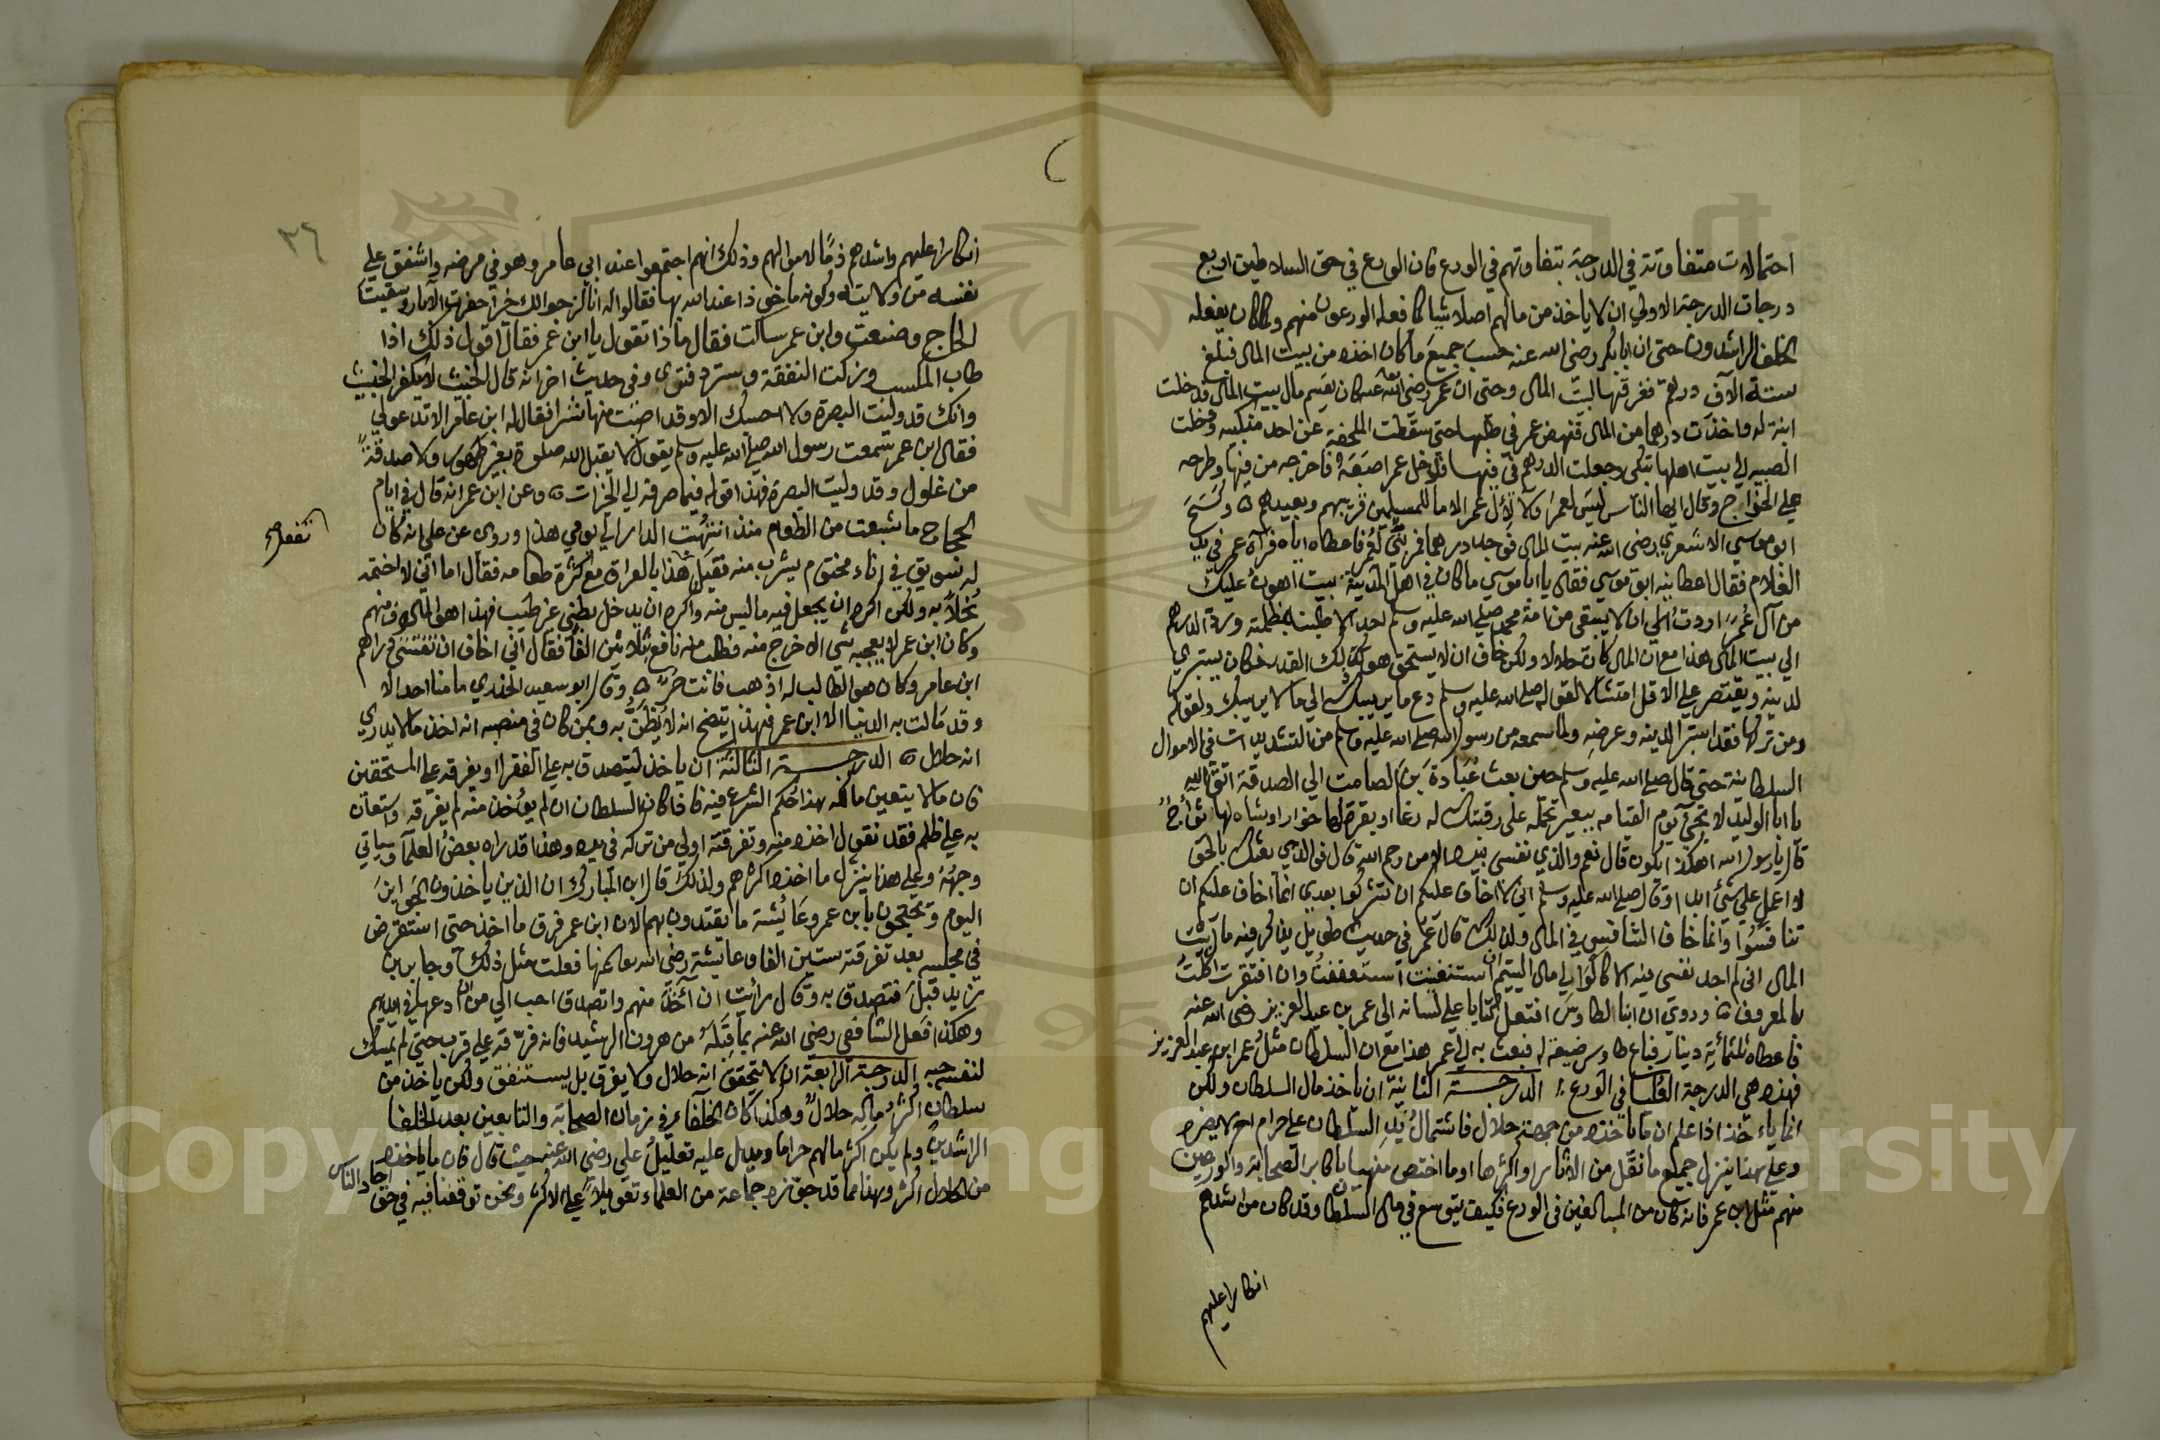 احتمالات متفاوتة في الدرجة بتفاوتهم في الورع فان الورع في حق السلاطين اربع
درجات الدرجة الاولي ان لا ياخذ من مالهم اصلا شيا كما فعله الورعون منهم وكما كان يفعله
الخلفا الراشدون حتى ان ابا بكر رضى الله عنه حسب جميع ما كان اخذه من بيت المال فبلغ
ستة الاف درهم فغرقها لبيت المال وحتى ان عمر رضى الله عنه كان يقسم مال بيت المال فدخلت
ابنة له واخذت درهما من المال فنهض عمر في طلبها حتى سقطت الملحفة عن احد منكبيه ودخلت
الصبيه الي بيت اهلها تبكى وجعلت الدرهم في فيها فادخل عمر اصبعه فاخرجه من فيها وطرحه
علي الخراج وقال ايها الناس ليس لعمر ولا لآل عمر الا ما للمسلمين قريبهم وبعيدهم ه وكسح
ابو موسي الاشعري رضى الله عنه بيت المال فوجد درهما فمر بنى لعمر فاعطاه اياه فرآه عمر في يد
الغلام فقال اعطانيه ابو موسي فقال يا ابا موسي ما كان في اهل المدينة بيت اهون عليك
من آل عمر اردت ان لا يبقى من امة محمد صلي الله عليه وسلم احد الا طلبنا بمظلمته ورد الدرهم
الي بيت المال هذا مع ان المال كان حلالا ولكن خاف ان لا يستحق هو ذلك القدر فكان يستبري
لدينه ويقتصر علي الاقل امتثالا لقوله صلي الله عليه وسلم دع ما يريبك الي ما لا يريبك ولقوله
ومن تركها فقد استبرا لدينه وعرضه ولما سمعه من رسول الله صلي الله عليه وسلم من التشديدات في الاموال
السلطانية حتى قال صلي الله عليه وسلم حين بعث عبادة بن الصامت الي الصدقة اتق الله
يا ابا الوليد لا تجئ يوم القيامة ببعير تحمله على رقبتك له رغا او بقرة لها خوار او شاه لها ثؤاج
قال يا رسول الله اهكذا يكون قال نعم والذي نفسى بيده الا من رحم الله قال فوالذي بعثك بالحق
لا اعمل علي شئ ابدا وقال صلي الله عليه وسلم اني لا اخاف عليكم ان تشركوا بعدي انما اخاف عليكم ان
تنافسوا وانما خاف التنافس في المال ولذلك قال عمر في حديث طويل يذكر فيه مال بيت
المال اني لم اجد نفسي فيه الا كالوالي مال اليتيم ان استغنيت استعففت وان افتقرت اكلت
بالمعروف ه وروي ان ابنا لطاوس افتعل كتابا علي لسانه الى عمر بن عبد العزيز رضى الله عنه
فاعطاه ثلثمائة دينار فباع طاوس ضيعة له فبعث بها الي عمر هذا مع ان السلطان مثل عمر ابن عبد العزيز
فهذه هي الدرجة العليا في الورع الدرجة الثانية ان ياخذ مال السلطان ولكن
انما ياء خذ اذا علم ان ما ياخذه من جهة حلال فاشتمال يد السلطان على حرام اخر لا يضره
وعلي هذا ينزل جميع ما نقل من الاثار او اكثرها او ما اختص منها باكابر الصحابة والورعين
منهم مثل ابن عمر فانه كان من المبالغين في الورع فكيف يتوسع في مال السلطان وقد كان من اشدهم
انكارا عليهم
٣٦
انكارا عليهم واشدهم ذما لاموالهم وذلك انهم اجتمعوا عند ابي عامر وهو في مرضه واشفق علي
نفسه من ولايته وكونه ماخوذا عند الله بها فقالوا له انا لنرجوا لك خيرا حفرت الآبار وسقيت
الحاج وصنعت وابن عمر ساكت فقال ماذا تقول يا ابن عمر فقال اقول ذلك اذا
طاب المكسب وزكت النفقة وسترد فترى وفي حديث اخر انه قال الخبيث لا يكفر الخبيث
وانك قد وليت البصرة ولا احسبك الا وقد اصبت منها شرا فقال له ابن عامر الا تدعو لي
فقال ابن عمر سمعت رسول الله صلي الله عليه وسلم يقول لا يقبل الله صلوة بغير طهور ولا صدقة
من غلول وقد وليت البصرة فهذا قوله فيما صرفه الي الخيرات ه وعن ابن عمر انه قال في ايام
الحجاج ما شبعت من الطعام منذ انتهبت الدار الي يومي هذا وروى عن علي انه كان
له سويق في اناء مختوم يشرب منه فقيل هذا بالعراق مع كثرة طعامه فقال اما اني لا اختمه
بخلا به ولكن اكره ان يجعل فيه ما ليس منه واكره ان يدخل بطني غير طيب فهذا هو المالوف منهم
وكان ابن عمر لا يعجبه شي الا خرج منه فطلب منه نافع بثلاثين الفا فقال اني اخاف ان تفتننى دراهم
ابن عامر وكان هو الطالب له اذهب فانت حر ه وقال ابو سعيد الخدري ما منا احد الا
وقد مالت به الدنيا الا ابن عمر فبهذا يتضح انه لا يظن به وبمن كان في منصبه انه اخذ مالا يدري
انه حلال ه الدرجة الثالثة ان ياخذ ليتصدق به علي الفقرا او يفرقه علي المستحقين
فان ما لا يتعين مالكه هذا حكم الشرع فيه فاذا كان السلطان ان لم يؤخذ منه لم يفرقه واستعان
به علي ظلم فقد نقول اخذه منه وتفرقته اولي من تركه في يده وهذا قد راه بعض العلماء وسياتي
وجهه وعلي هذا ينزل ما اخذه اكثرهم ولذلك قال ابن المبارك ان الذين ياخذون الجوايز
اليوم ويحتجون بابن عمر وعايشة ما يقتدون بهم لان ابن عمر فرق ما اخذ حتى استقرض
في مجلسه بعد تفرقته ستين الفا وعايشة رضى الله عنها فعلت مثل ذلك وجابر بن
يزيد قبل فتصدق به وقال رايت ان آخذه منهم واتصدق احب الي من ان ادعها في ايديهم
وهكذا فعل الشافعي رضي الله عنه بما قبله من هرون الرشيد فانه فرقه علي قرب حتي لم يمسك
لنفسه حبه الدرجة الرابعة ان لا يتحقق انه حلال ولا يفرق بل يستنفق ولكن ياخذ من
سلطان اكثر ماله حلال وهكذا كان الخلفاء في زمان الصحابة والتابعين بعد الخلفا
الراشدين ولم يكن اكثر مالهم حراما ويدل عليه تعليل علي رضي الله عنه حيث قال فان ما ياخذه
من الحلال اكثر وهذا مما قد جوزه جماعة من العلماء تعويلا علي الاكثر ونحن توقفنا فيه في حق احاد الناس
Copyright © King Saud University
195